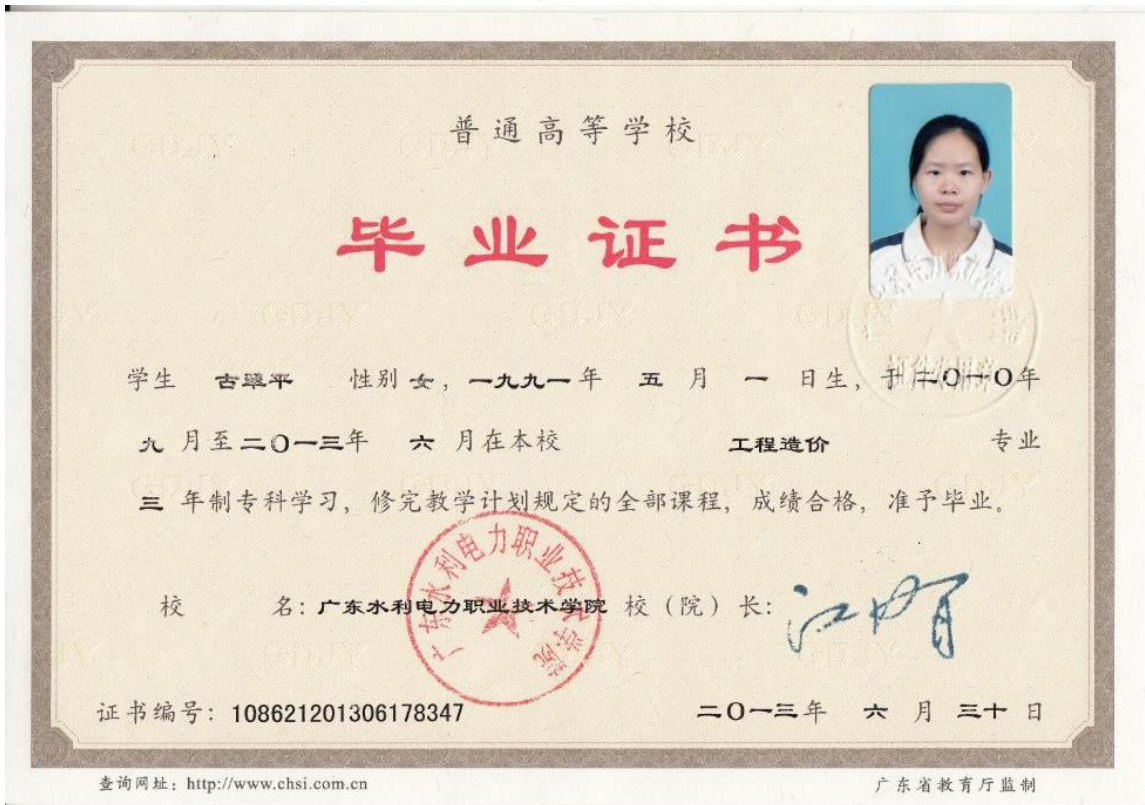 普通高等学校
毕业证书
学生 古翠平 性别 女，一九九一年 五 月 一 日生，于 二〇一〇年
九 月至二〇一三年 六 月在本校 工程造价 专业
三 年制专科学习，修完教学计划规定的全部课程，成绩合格，准予毕业。
广东水利电力职业技术学院
校 名：广东水利电力职业技术学院 校（院）长：
证书编号：108621201306178347 二〇一三年 六 月 三十 日
查询网址：http://www.chsi.com.cn 广东省教育厅监制